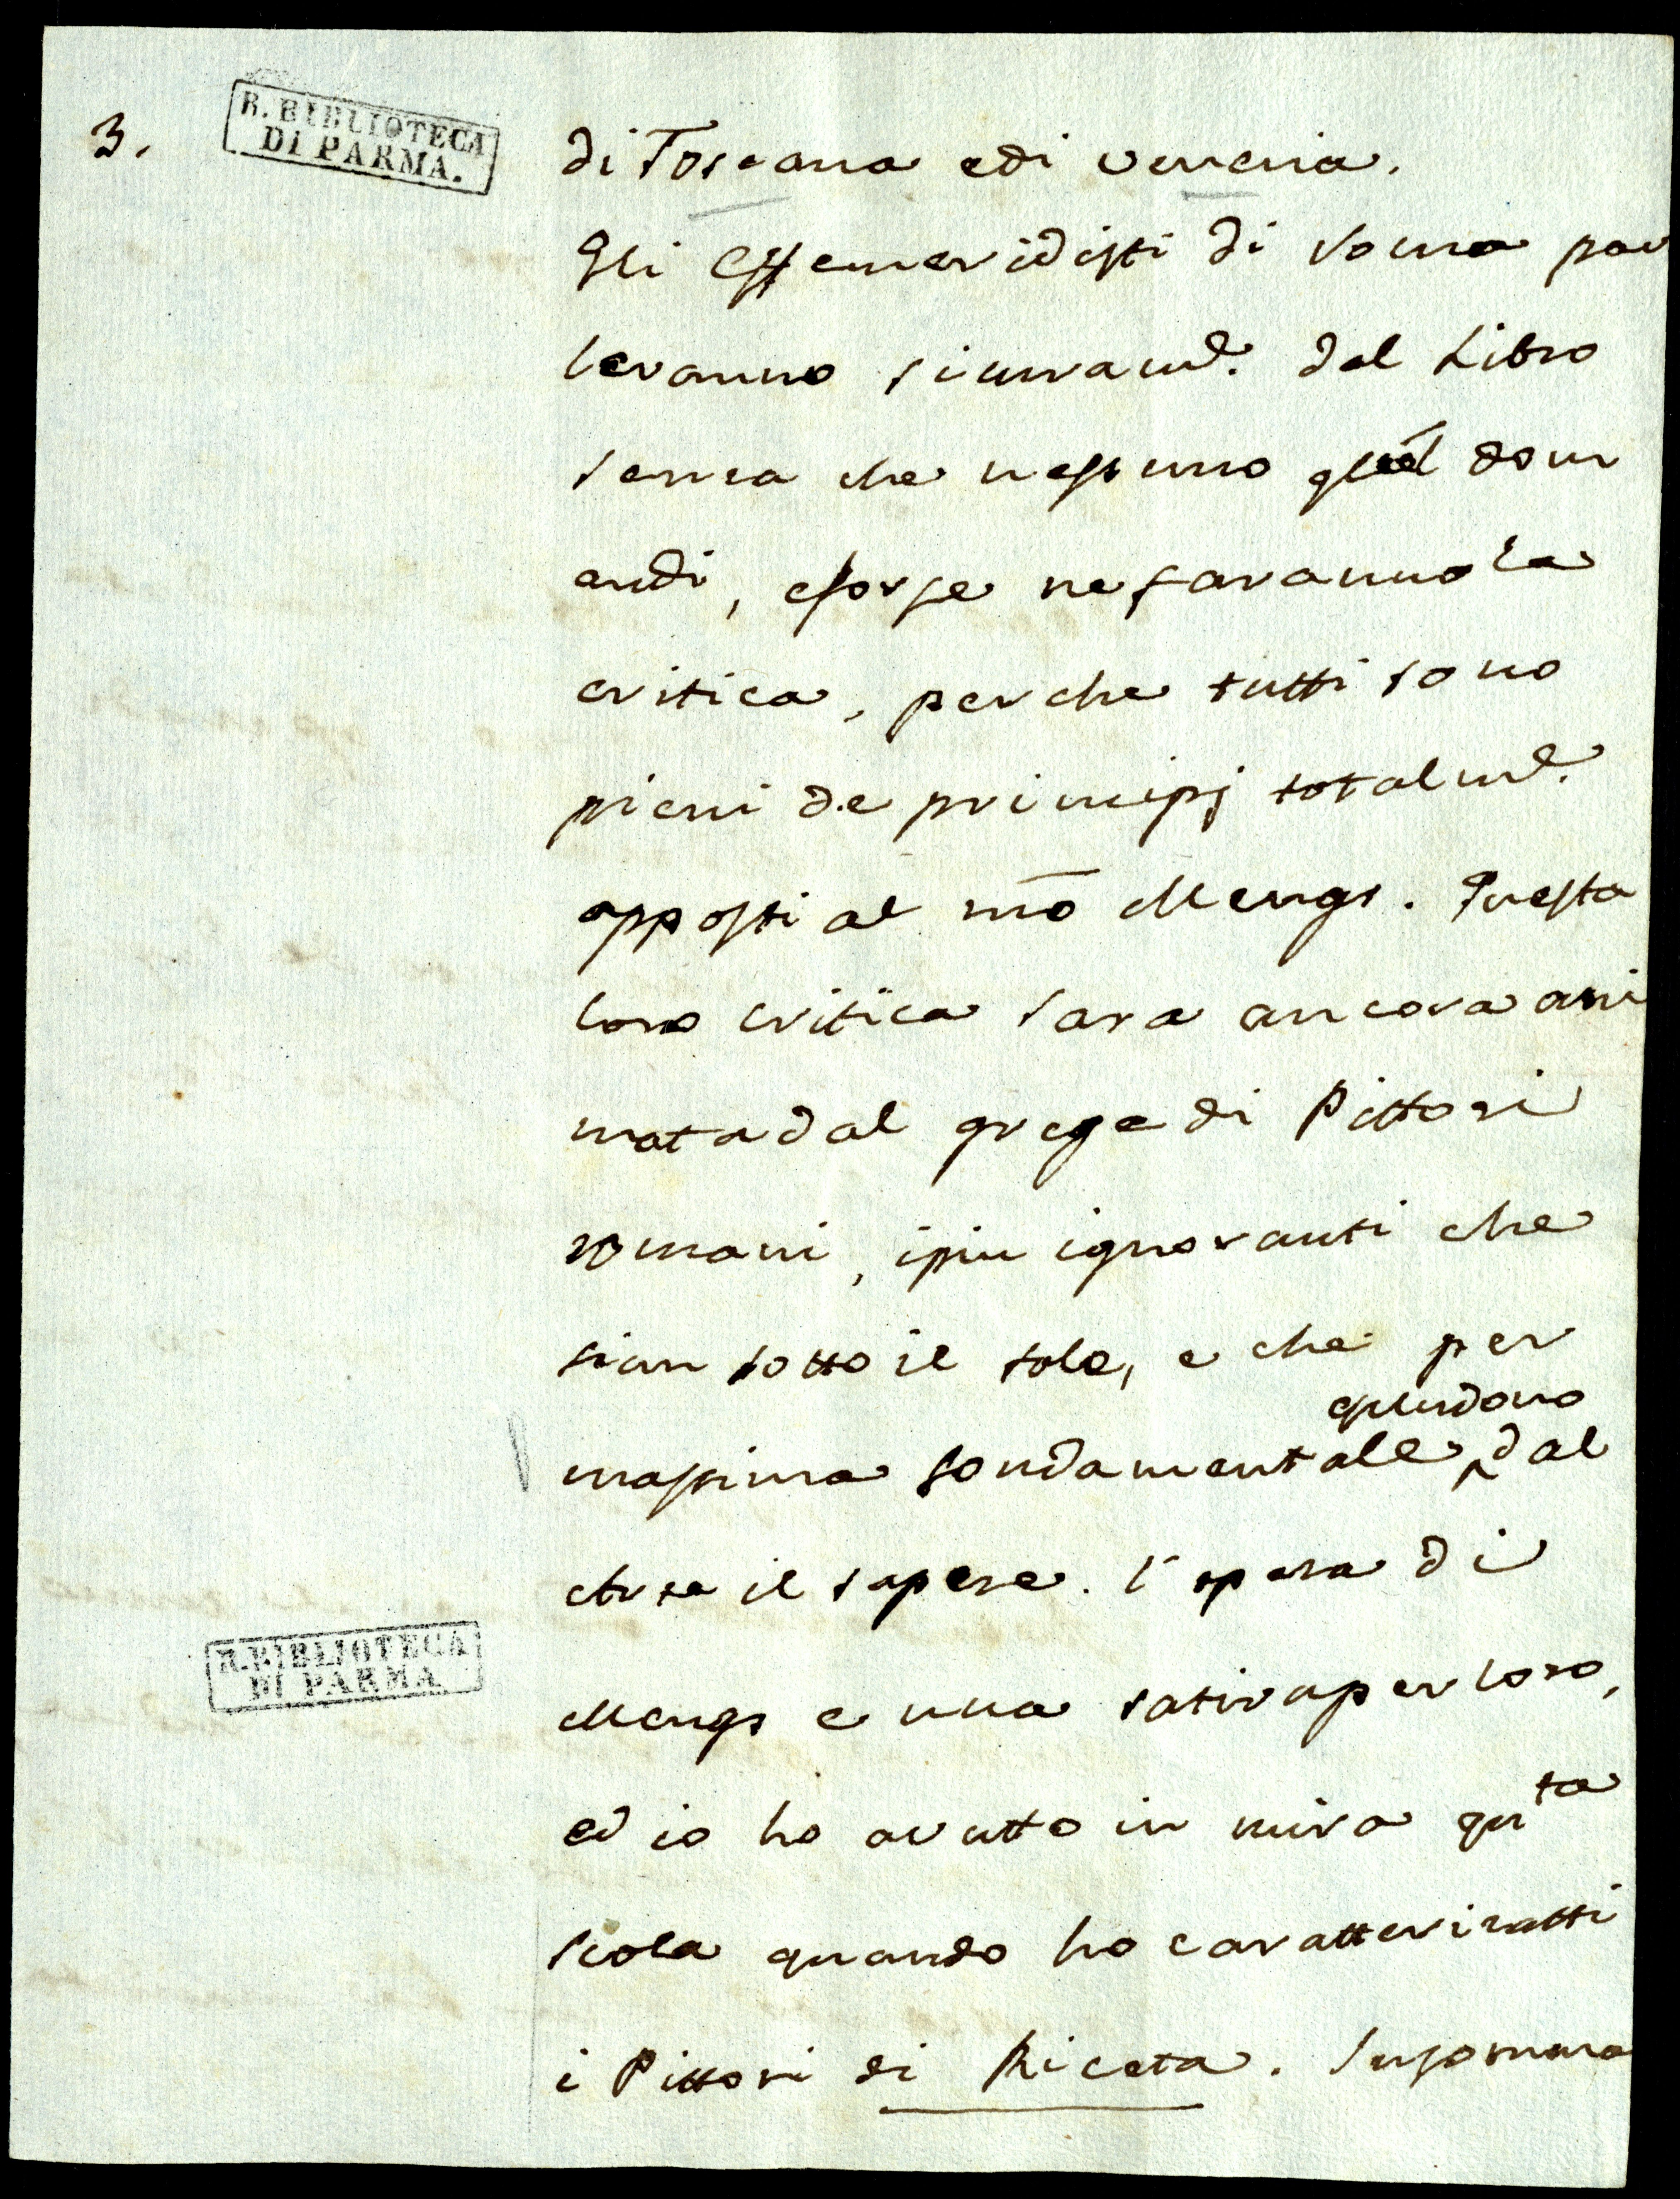 3.
R. BIBLIOTECA
DI PARMA.
di Toscana e di venezia.
Gli Effemeridisti di roma par
leranno sicuram.e dal Libro
senza che nessuno gliel dom
andi, e forse ne faranno la
critica, perche tutti sono
pieni de principj totalm.e
opposti al mō Mengs. Questa
loro critica sara ancora ani
mata dal grege di Pittori
romani, i piu ignoranti che
sian sotto il sole, e che per
escludono
massima fondamentale ^ dal
Arte il sapere. l'opera di
Mengs e una satira per loro,
ed io ho avutto in mira qu.ta
scola quando ho caratterizatti
i Pittori di Riceta. Insomma
R. BIBLIOTECA
DI PARMA